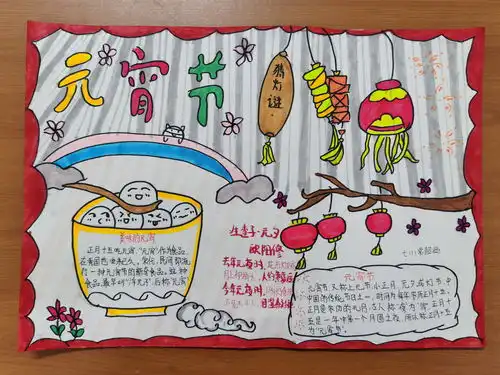 元宵节
猜灯谜
美味的元宵
正月十五吃元宵,"元宵"作为食品,
在我国也由来已久。宋代,民间即流
行一种元宵节的新奇食品。这种
食品,最早叫"浮元子",后称"元宵"
生查子·元夕
欧阳修
去年元夜时,花
今年元夜时,
七川
元宵节
元宵节,又称上元节、小正月、元夕或灯节,中
国的传统节日之一,时间为每年农历正月十五。
正月是农历的元月,古人称"夜"为"宵",正月十
五是一年中第一个月圆之夜,所以称正月十五
为"元宵节"。